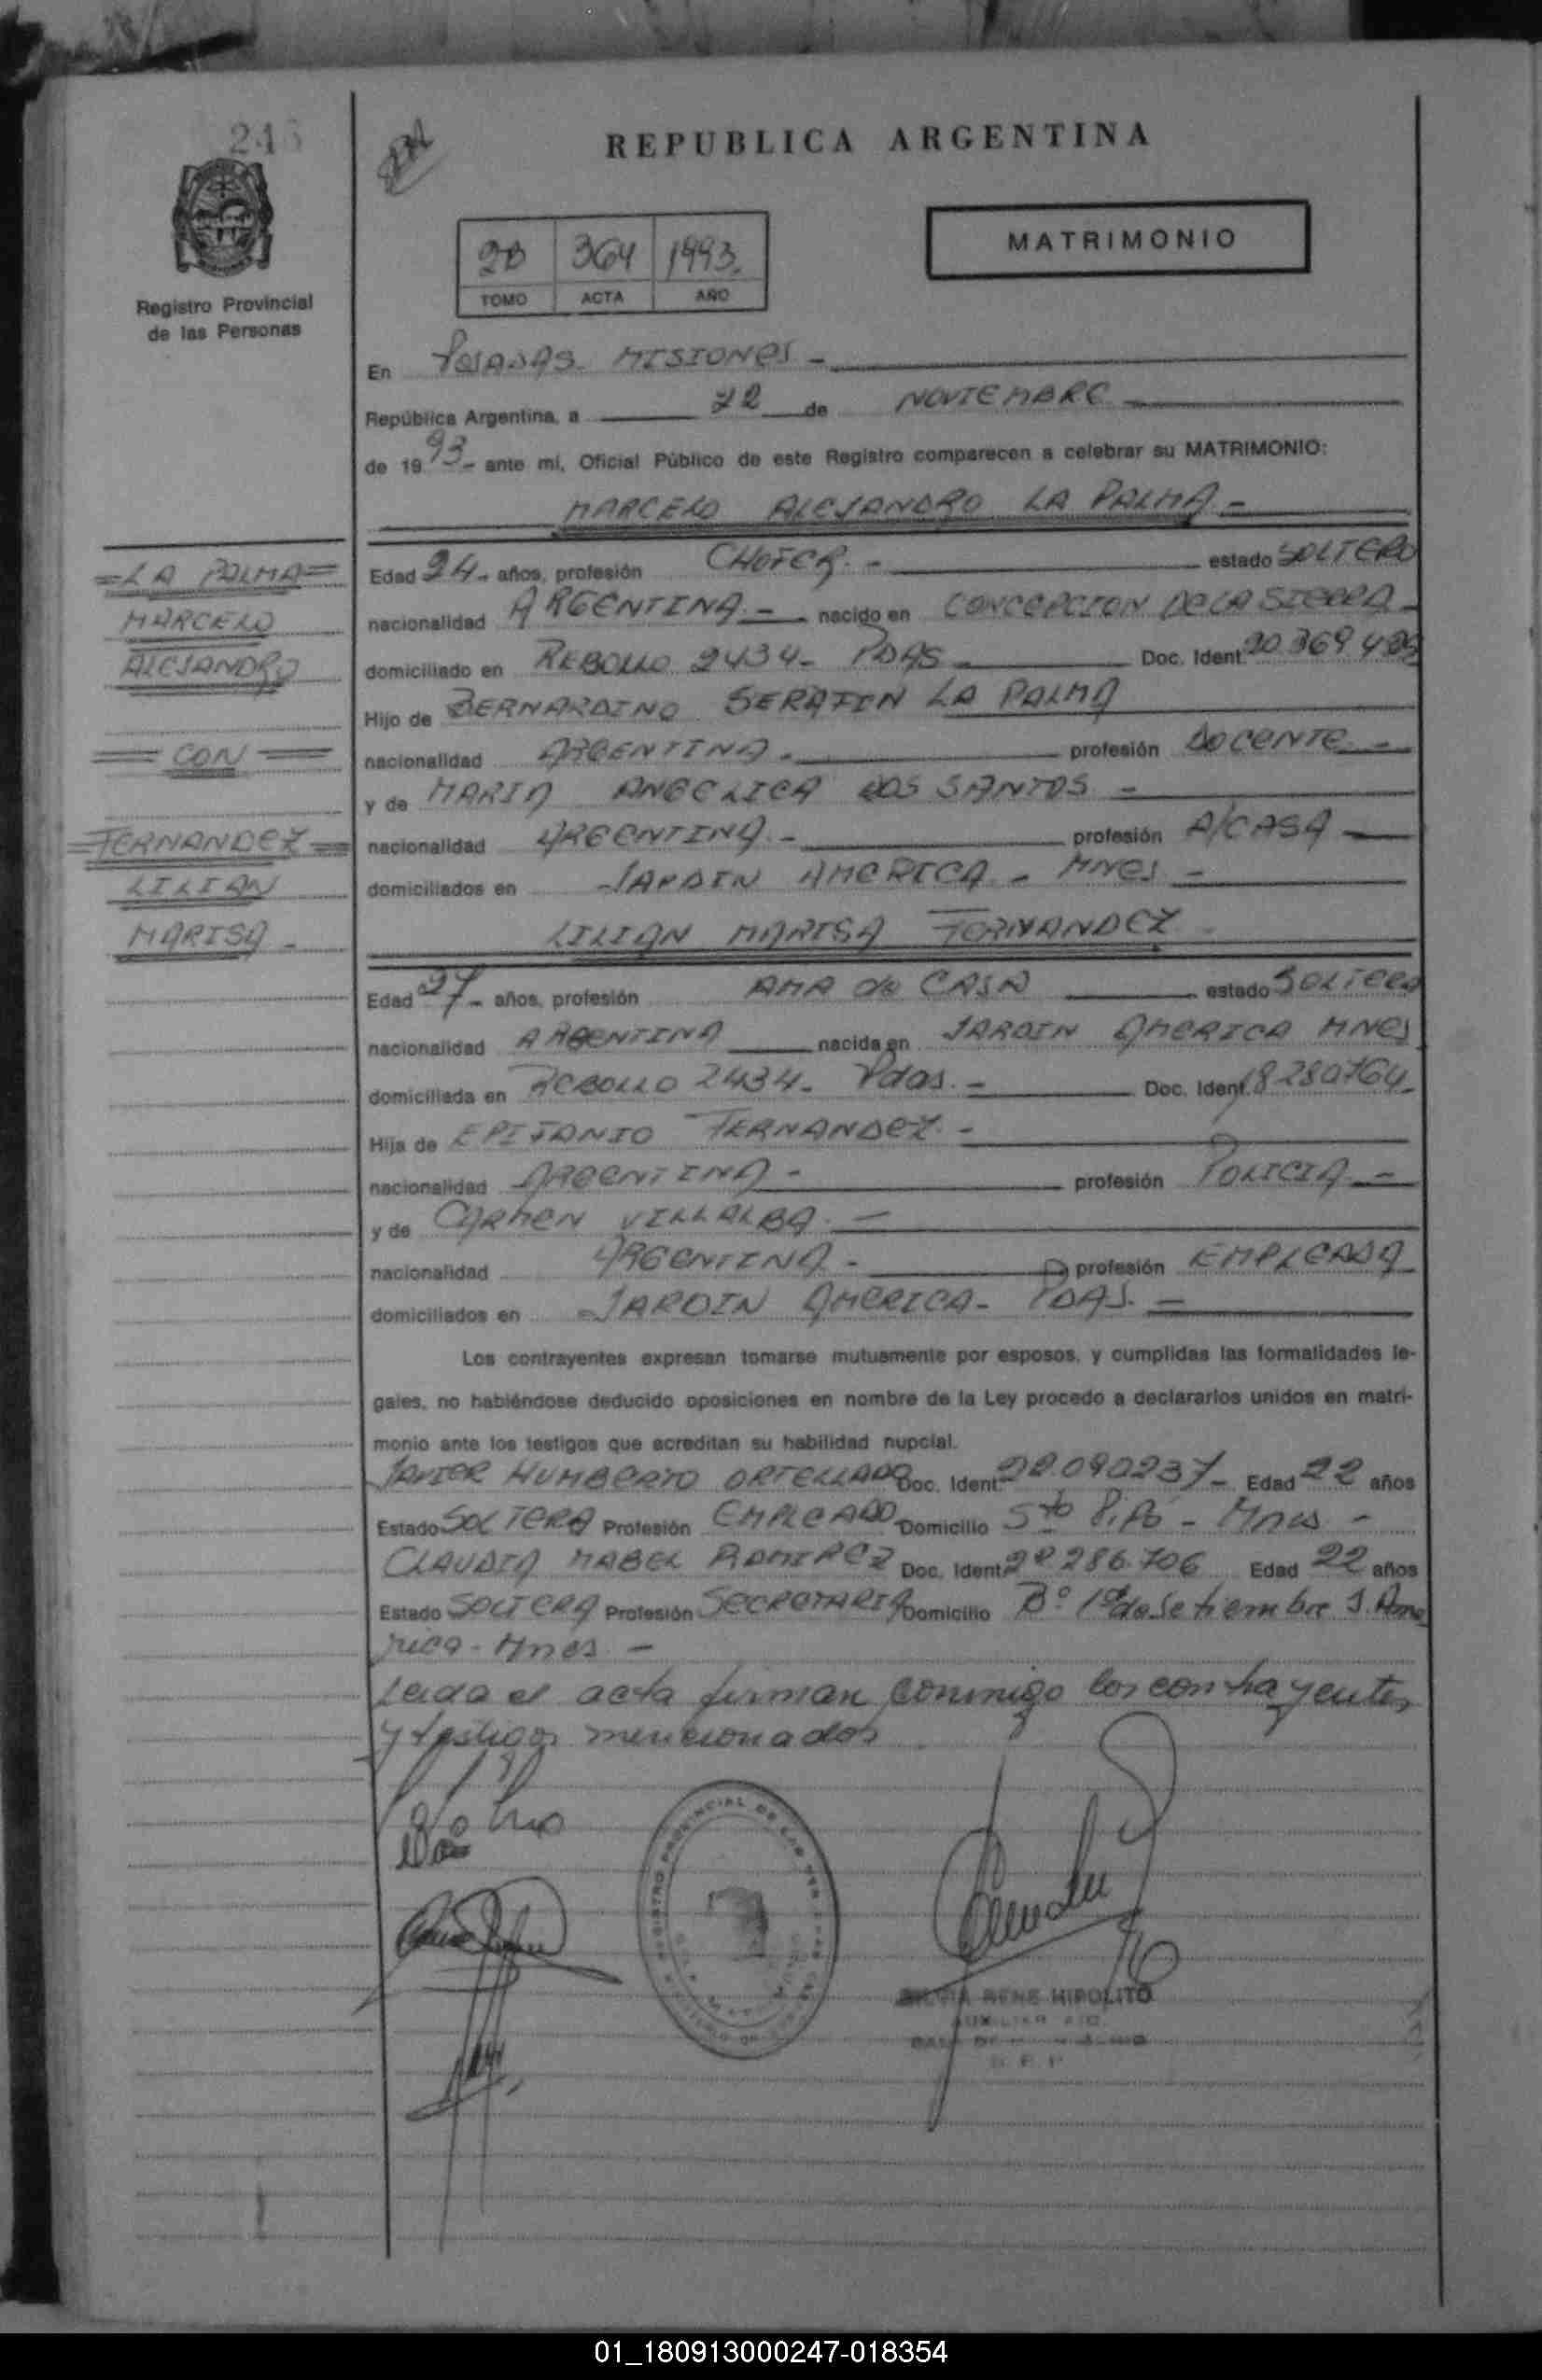 REPUBLICA ARGENTINA
MATRIMONIO
2B 364 1993.
TOMO ACTA AÑO
Registro Provincial
de las Personas
En POSADAS MISIONES -
República Argentina, a 22 de NOVIEMBRE
de 1993- ante mí, Oficial Público de este Registro comparecen a celebrar su MATRIMONIO:
MARCELO ALEJANDRO LA PALMA -
=LA PALMA=
MARCELO
ALEJANDRO
= CON =
=FERNANDEZ=
LILIAN
MARISA -
Edad 24- años, profesión CHOFER. - estado SOLTERO
nacionalidad ARGENTINA - nacido en CONCEPCION DE LA SIERRA -
domiciliado en REBOLLO 2434- PDAS Doc. Ident. 20.369
Hijo de BERNARDINO SERAFIN LA PALMA
nacionalidad ARGENTINA - profesión DOCENTE -
y de MARIA ANGELICA DOS SANTOS -
nacionalidad ARGENTINA - profesión A/CASA
domiciliados en JARDIN AMERICA - MNES -
LILIAN MARISA FERNANDEZ -
Edad 27- años, profesión AMA de CASA estado SOLTERA
nacionalidad ARGENTINA nacida en JARDIN AMERICA MNES
domiciliada en REBOLLO 2434- Pdas. - Doc. Ident. 18280764-
Hija de EPIFANIO FERNANDEZ -
nacionalidad ARGENTINA - profesión POLICIA -
y de CARMEN VILLALBA. -
nacionalidad ARGENTINA - profesión EMPLEADA
domiciliados en JARDIN AMERICA- PDAS. -
Los contrayentes expresan tomarse mutuamente por esposos, y cumplidas las formalidades le-
gales, no habiéndose deducido oposiciones en nombre de la Ley procedo a declararlos unidos en matri-
monio ante los testigos que acreditan su habilidad nupcial.
JAVIER HUMBERTO ORTELLADO Doc. Ident. 22.090237- Edad 22 años
Estado SOLTERO Profesión EMPLEADO Domicilio Sto Pipó - Mnes -
CLAUDIA MABEL RAMIREZ Doc. Ident. 22.286.706 Edad 22 años
Estado SOLTERA Profesión SECRETARIA Domicilio Bº 1º de Setiembre J. Ame
rica - Mnes -
Leida el acta firman conmigo los contrayentes
y testigos mencionados
SILVIA RENE HIPOLITO
01_180913000247-018354